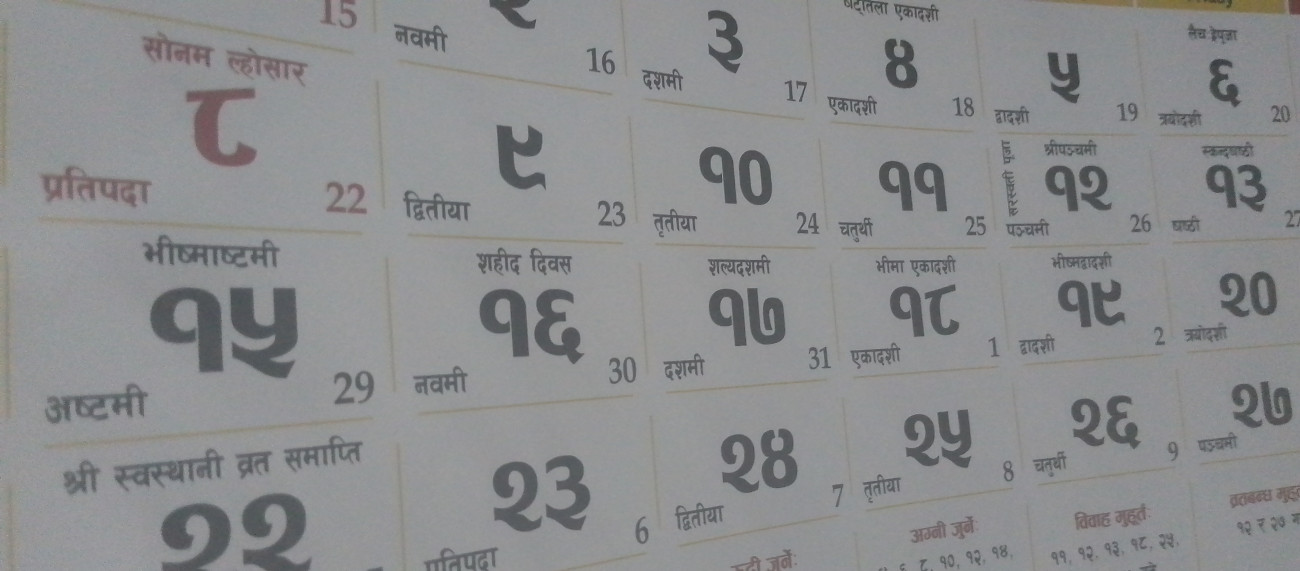 15
नवमी
16
३
दशमी
17
षट्तिला एकादशी
४
एकादशी
18
५
द्वादशी
19
६
त्रयोदशी
20
सोनम ल्होसार
८
प्रतिपदा
22
९
द्वितीया
23
१०
तृतीया
24
११
चतुर्थी
25
सरस्वती पूजा
श्रीपञ्चमी
१२
पञ्चमी
26
स्कन्दषष्ठी
१३
षष्ठी
27
भीष्माष्टमी
१५
अष्टमी
29
शहीद दिवस
१६
नवमी
30
शल्यदशमी
१७
दशमी
31
भीमा एकादशी
१८
एकादशी
1
भीष्मद्वादशी
१९
द्वादशी
2
२०
त्रयोदशी
श्री स्वस्थानी व्रत समाप्ति
२२
२३
प्रतिपदा
6
२४
द्वितीया
7
२५
तृतीया
8
२६
चतुर्थी
9
२७
पञ्चमी
जुर्नेः
अग्नी जुर्नेः
८, १०, १२, १४,
विवाह मुहूर्तः
११, १२, १३, १८, २५,
व्रतबन्ध
१२ र २७